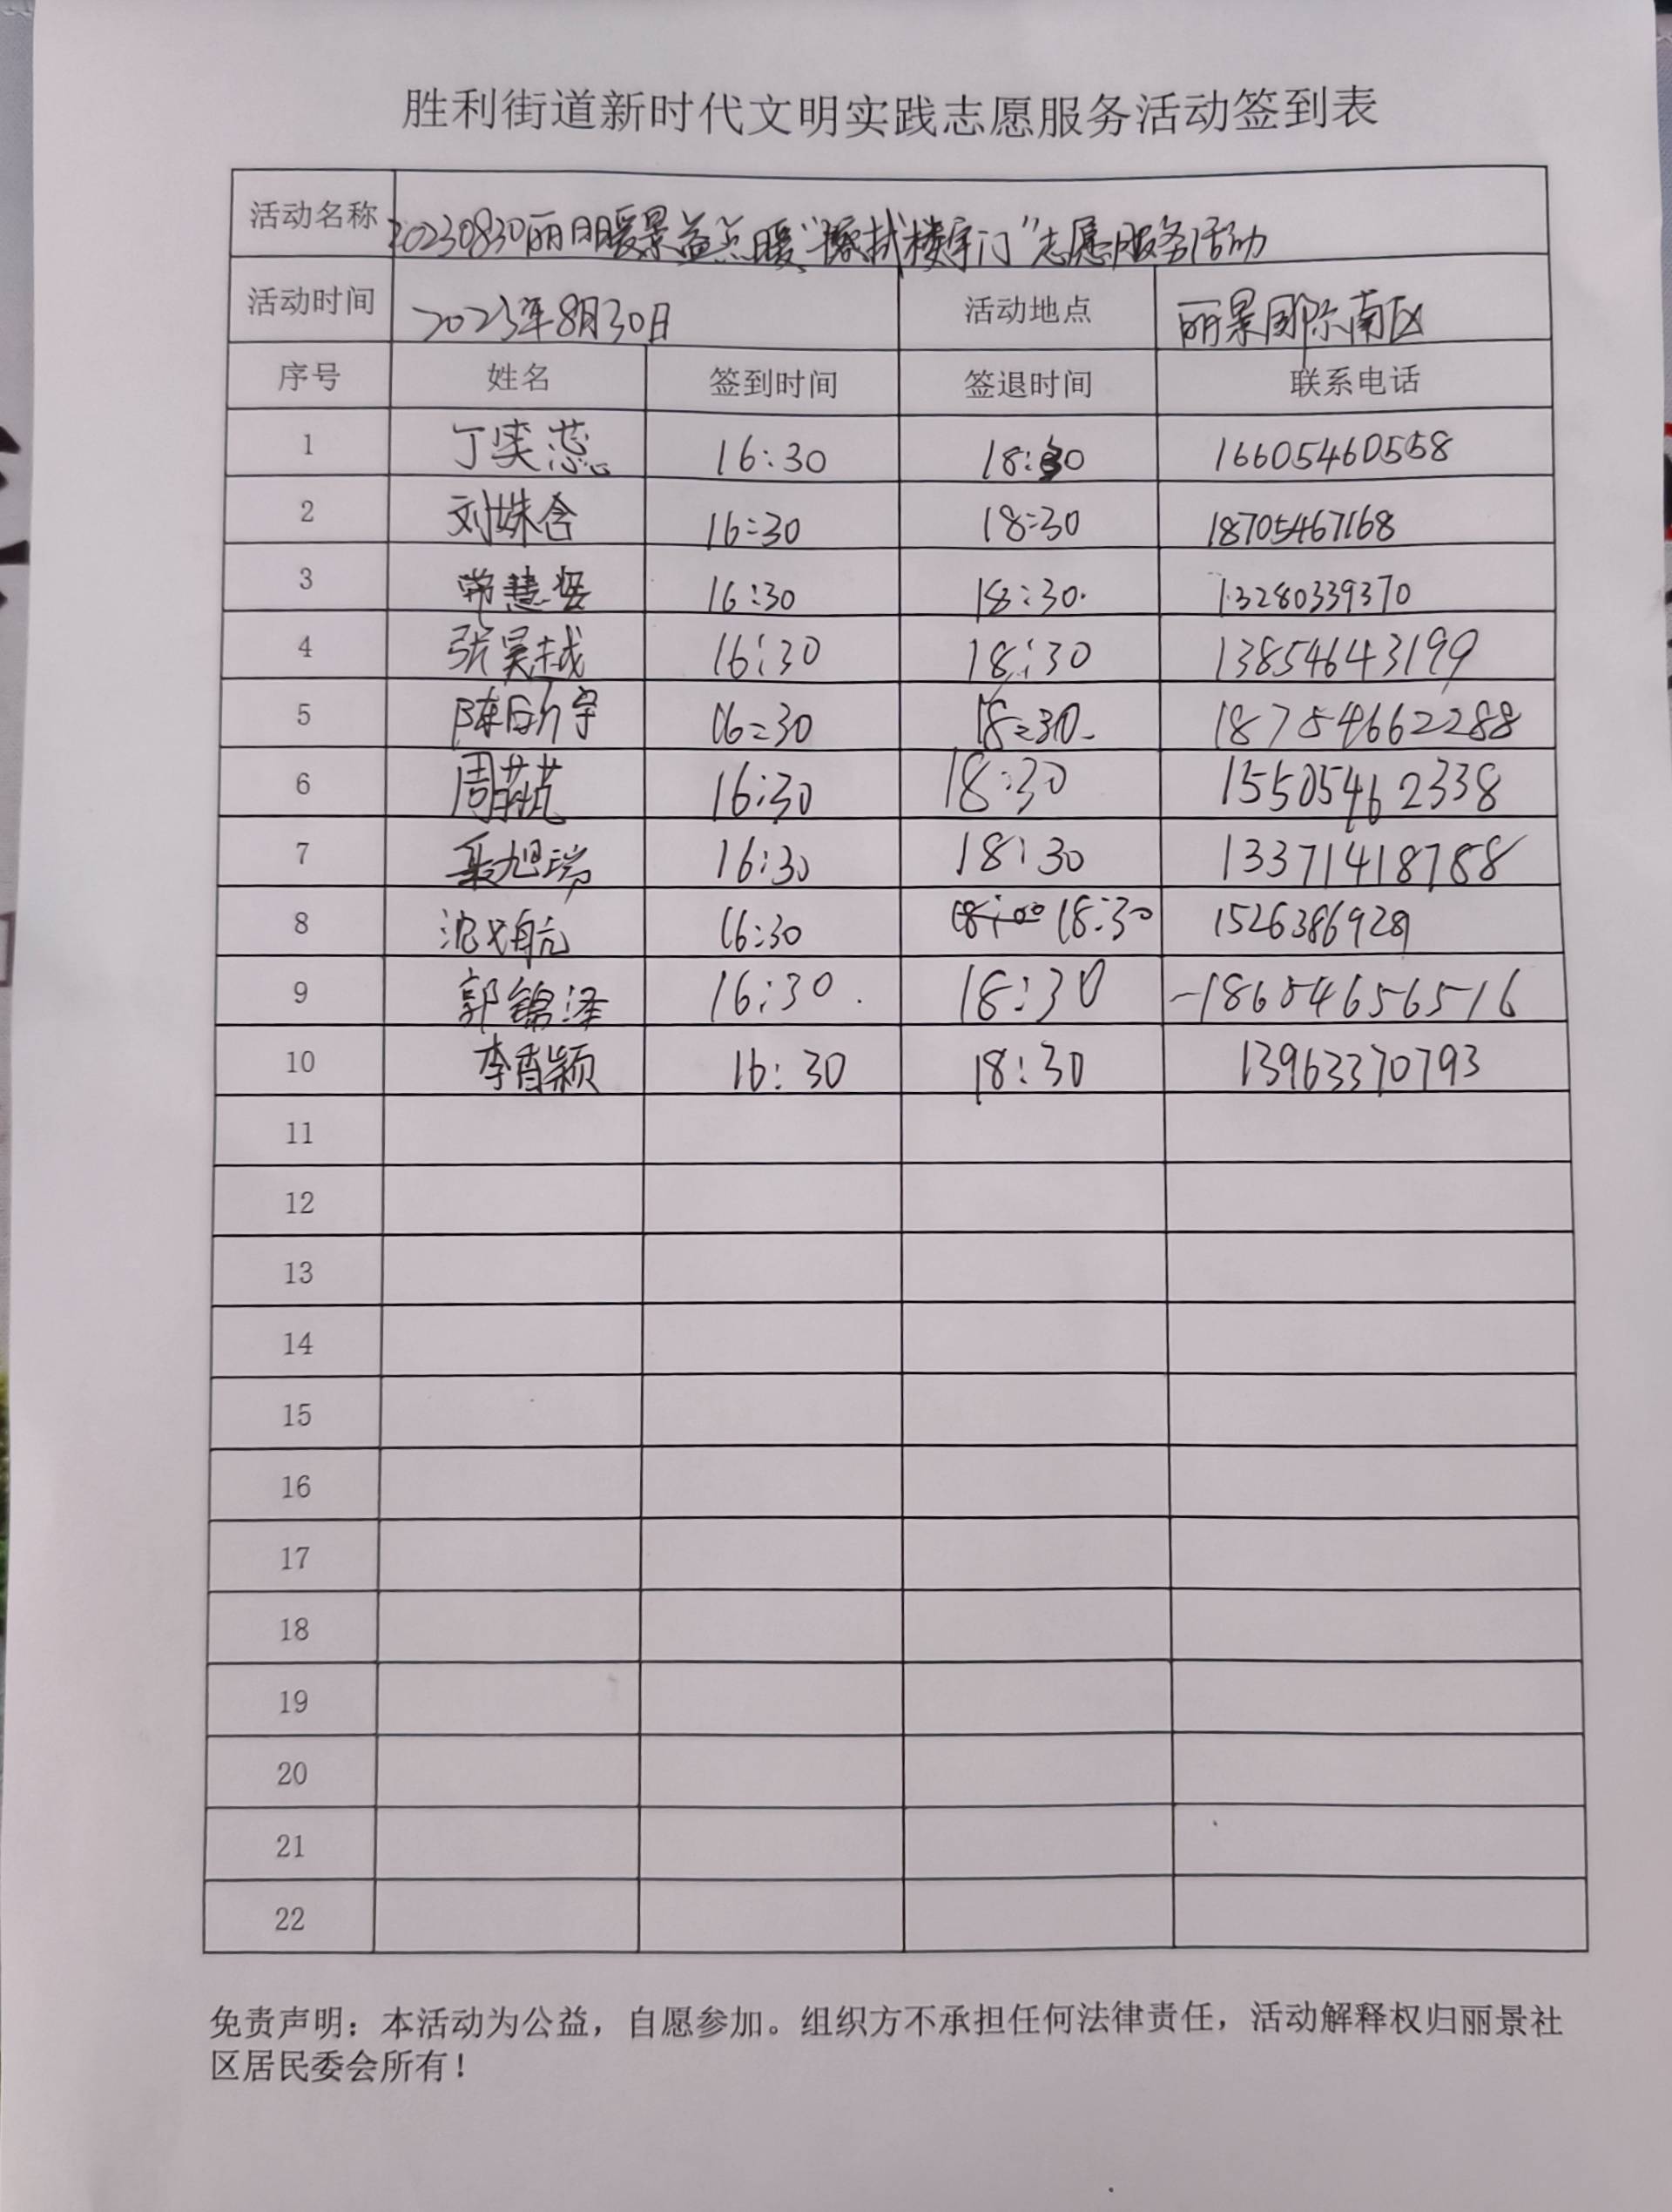 胜利街道新时代文明实践志愿服务活动签到表
活动名称 20230830丽日暖景益点暖“擦拭楼宇门”志愿服务活动
活动时间 2023年8月30日 活动地点 丽景国际南区
序号 姓名 签到时间 签退时间 联系电话
1 丁奕蕊 16:30 18:30 16605460558
2 刘姝含 16:30 18:30 18705467168
3 16:30 18:30 13280339370
4 张昊越 16:30 18:30 13854643199
5 陈昕宇 16:30 18:30 18754662288
6 周 16:30 18:30 15505462338
7 聂旭瑞 16:30 18:30 13371418788
8 沈 航 16:30 18:00 18:30 1526386928
9 郭锦泽 16:30 18:30 18654656516
10 李香颖 16:30 18:30 13963370793
11
12
13
14
15
16
17
18
19
20
21
22
免责声明：本活动为公益，自愿参加。组织方不承担任何法律责任，活动解释权归丽景社
区居民委会所有！